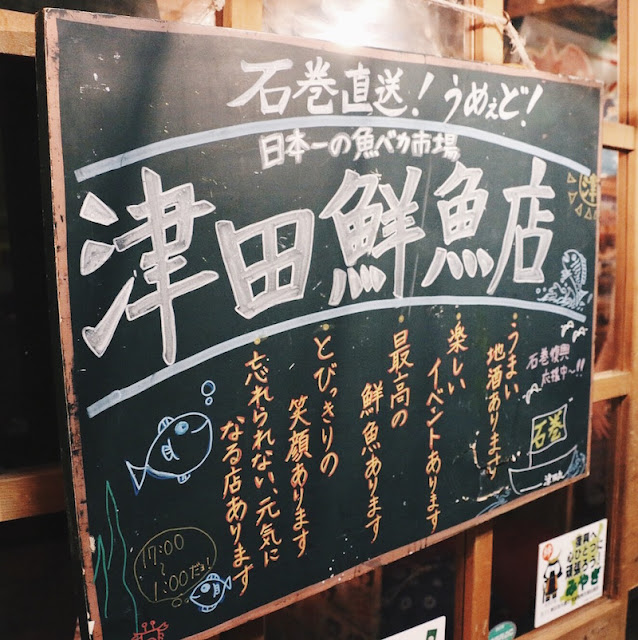 石巻直送!うめぇど!
日本一の魚バカ市場
津田鮮魚店
津
・うまい
地酒あります
・楽しい
イベントあります
・最高の
鮮魚あります
・とびっきりの
笑顔あります
・忘れられない、元気に
なる店あります
石巻復興
応援中〜!!
石巻
17:00
〜
1:00だョ!
復興へ
心ひとつに
頑張ろう
みやぎ